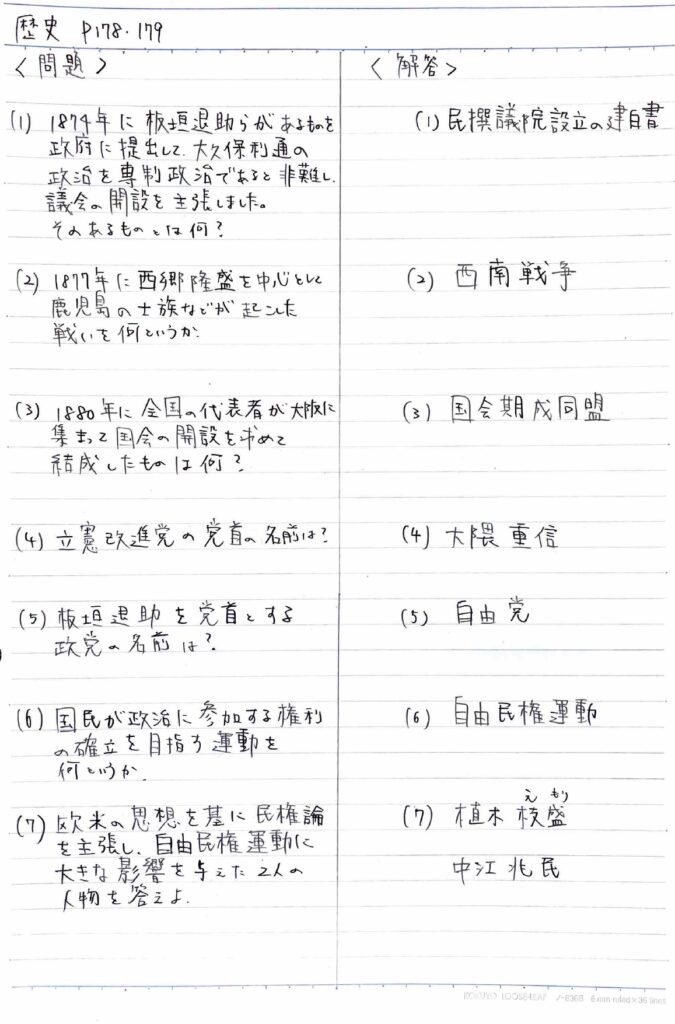 歴史 P178.179
＜問題＞
＜解答＞
(1) 1874年に板垣退助らがあるものを
政府に提出して、大久保利通の
政治を専制政治であると非難し、
議会の開設を主張しました。
そのあるものとは何？
(1) 民撰議院設立の建白書
(2) 1877年に西郷隆盛を中心として
鹿児島の士族などが起こした
戦いを何というか.
(2) 西南戦争
(3) 1880年に全国の代表者が大阪に
集まって国会の開設を求めて
結成したものは何？
(3) 国会期成同盟
(4) 立憲改進党の党首の名前は？
(4) 大隈重信
(5) 板垣退助を党首とする
政党の名前は？
(5) 自由党
(6) 国民が政治に参加する権利
の確立を目指す運動を
何というか.
(6) 自由民権運動
(7) 欧米の思想を基に民権論
を主張し、自由民権運動に
大きな影響を与えた2人の
人物を答えよ.
えもり
(7) 植木枝盛
中江兆民
KOKUYO LOOSE-LEAF ノ-836B 6mm ruled×36 lines